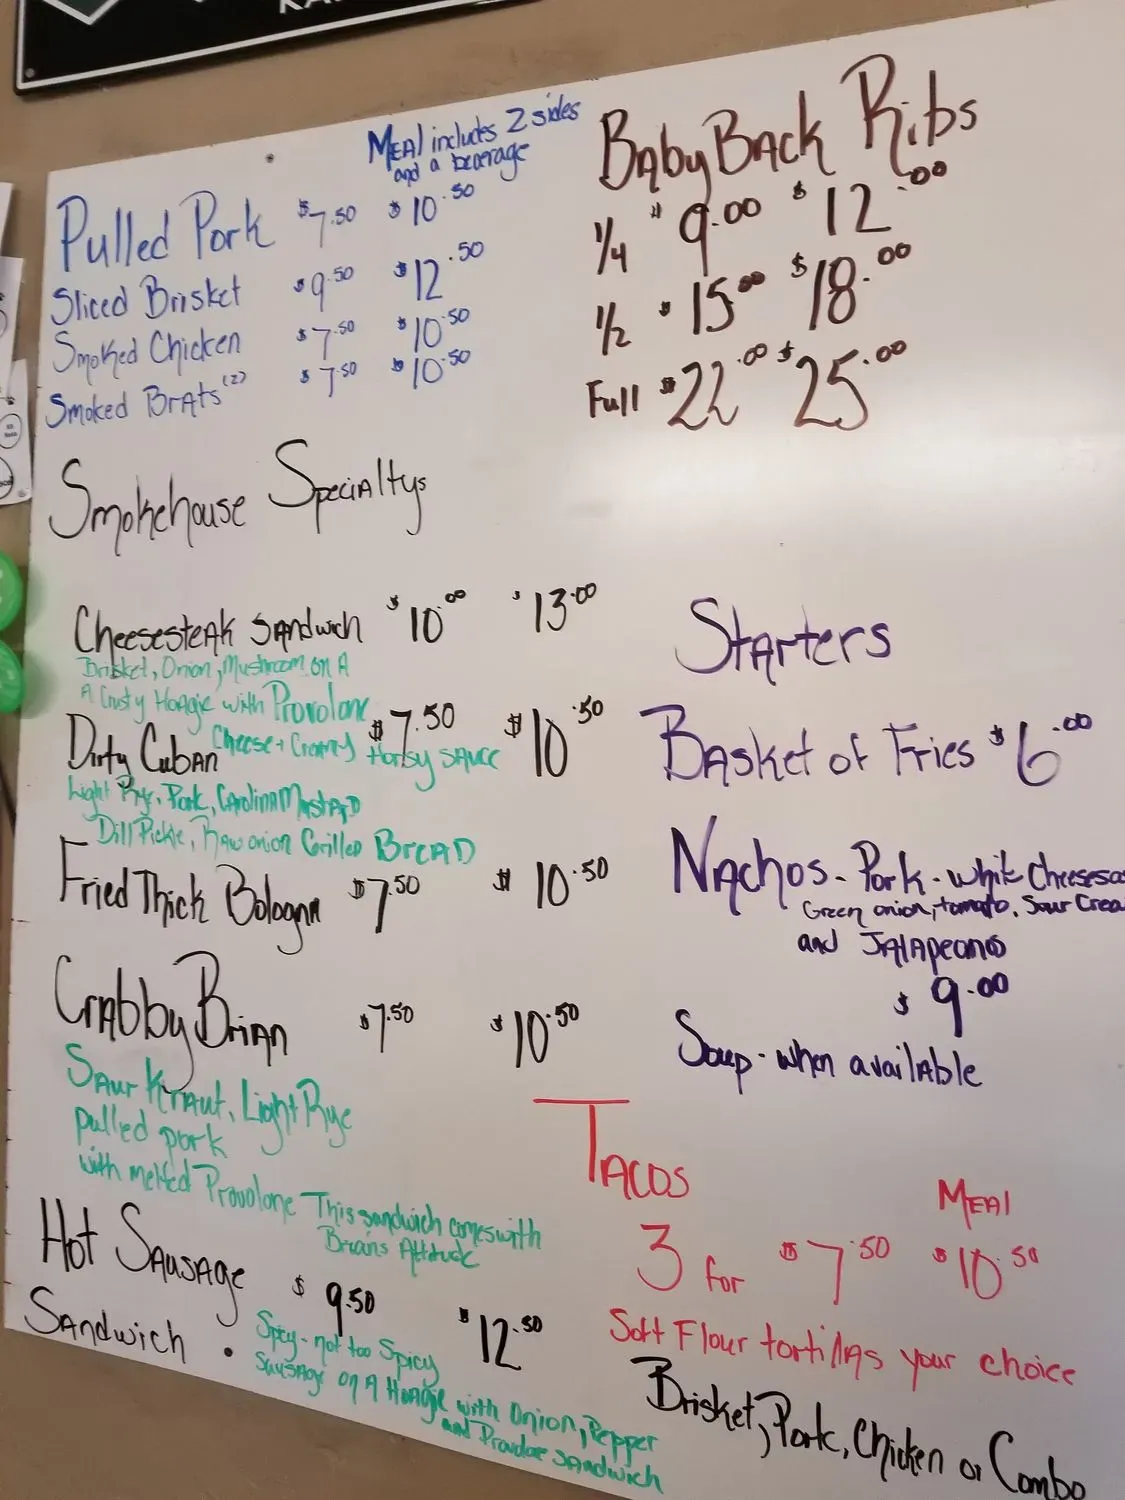 Meal includes 2 sides
and a beverage
Pulled Pork $7.50 $10.50
Sliced Brisket $9.50 $12.50
Smoked Chicken $7.50 $10.50
Smoked Brats (2) $7.50 $10.50
Baby Back Ribs
1/4 $9.00 $12.00
1/2 $15.00 $18.00
Full $22.00 $25.00
Smokehouse Specialtys
Cheesesteak Sandwich $10.00 $13.00
Brisket, Onion, Mushroom on A
A Crusty Hoagie with Provolone
Cheese + Creamy Horsy sauce
Dirty Cuban $7.50 $10.50
Light Rye, Pork, Carolina Mustard
Dill Pickle, Raw onion Grilled Bread
Fried Thick Bologna $7.50 $10.50
Crabby Brian $7.50 $10.50
Saur Kraut, Light Rye
pulled pork
with melted Provolone This sandwich comes with
Brain's Attitude
Hot Sausage
Sandwich . $9.50 $12.50
Spicy - not too Spicy
Sausage on A Hoagie with Onion, Pepper
and Provolone sandwich
Starters
Basket of Fries $6.00
Nachos - Pork - White Cheesesa
Green onion, tomato, Sour Crea
and Jalapeanos
$9.00
Soup - when available
Tacos
Meal
3 for $7.50 $10.50
Soft Flour tortillas your choice
Brisket, Pork, Chicken or Combo